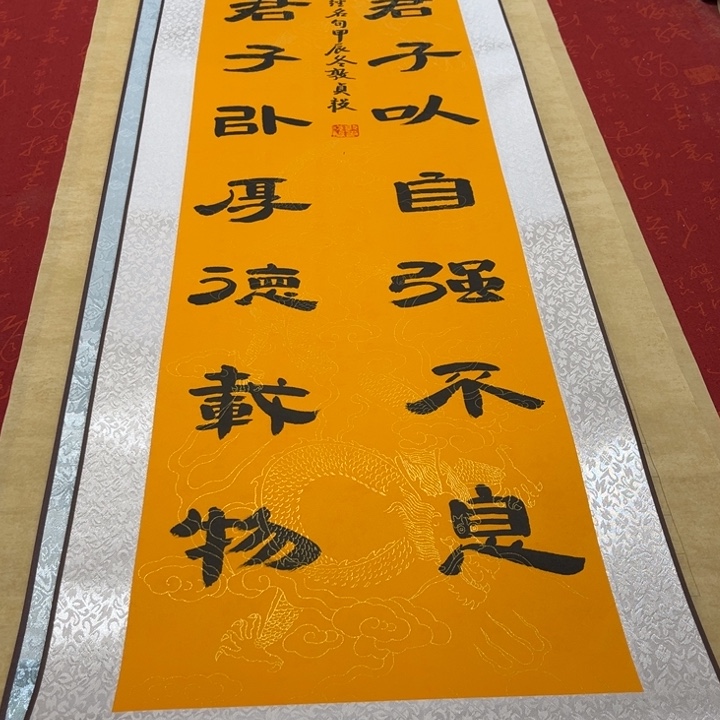 君子以自强不息
君子以厚德載物
名句甲辰冬龔貞